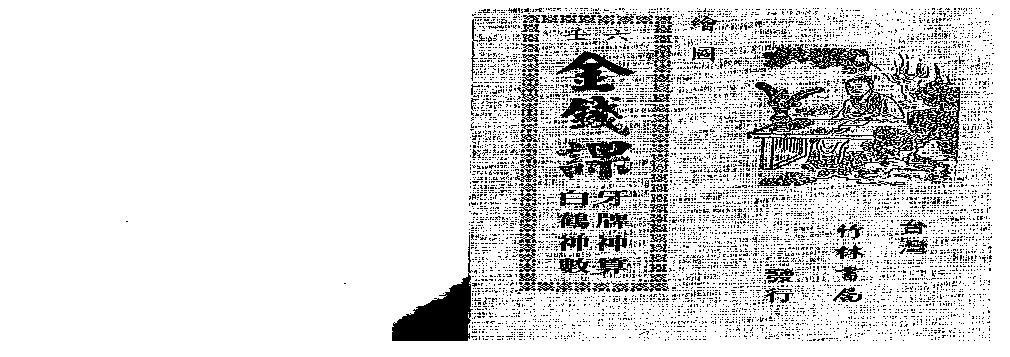 繪圖
六壬
金錢課
牙牌神算
白鶴神數
台灣
竹林書局
發行